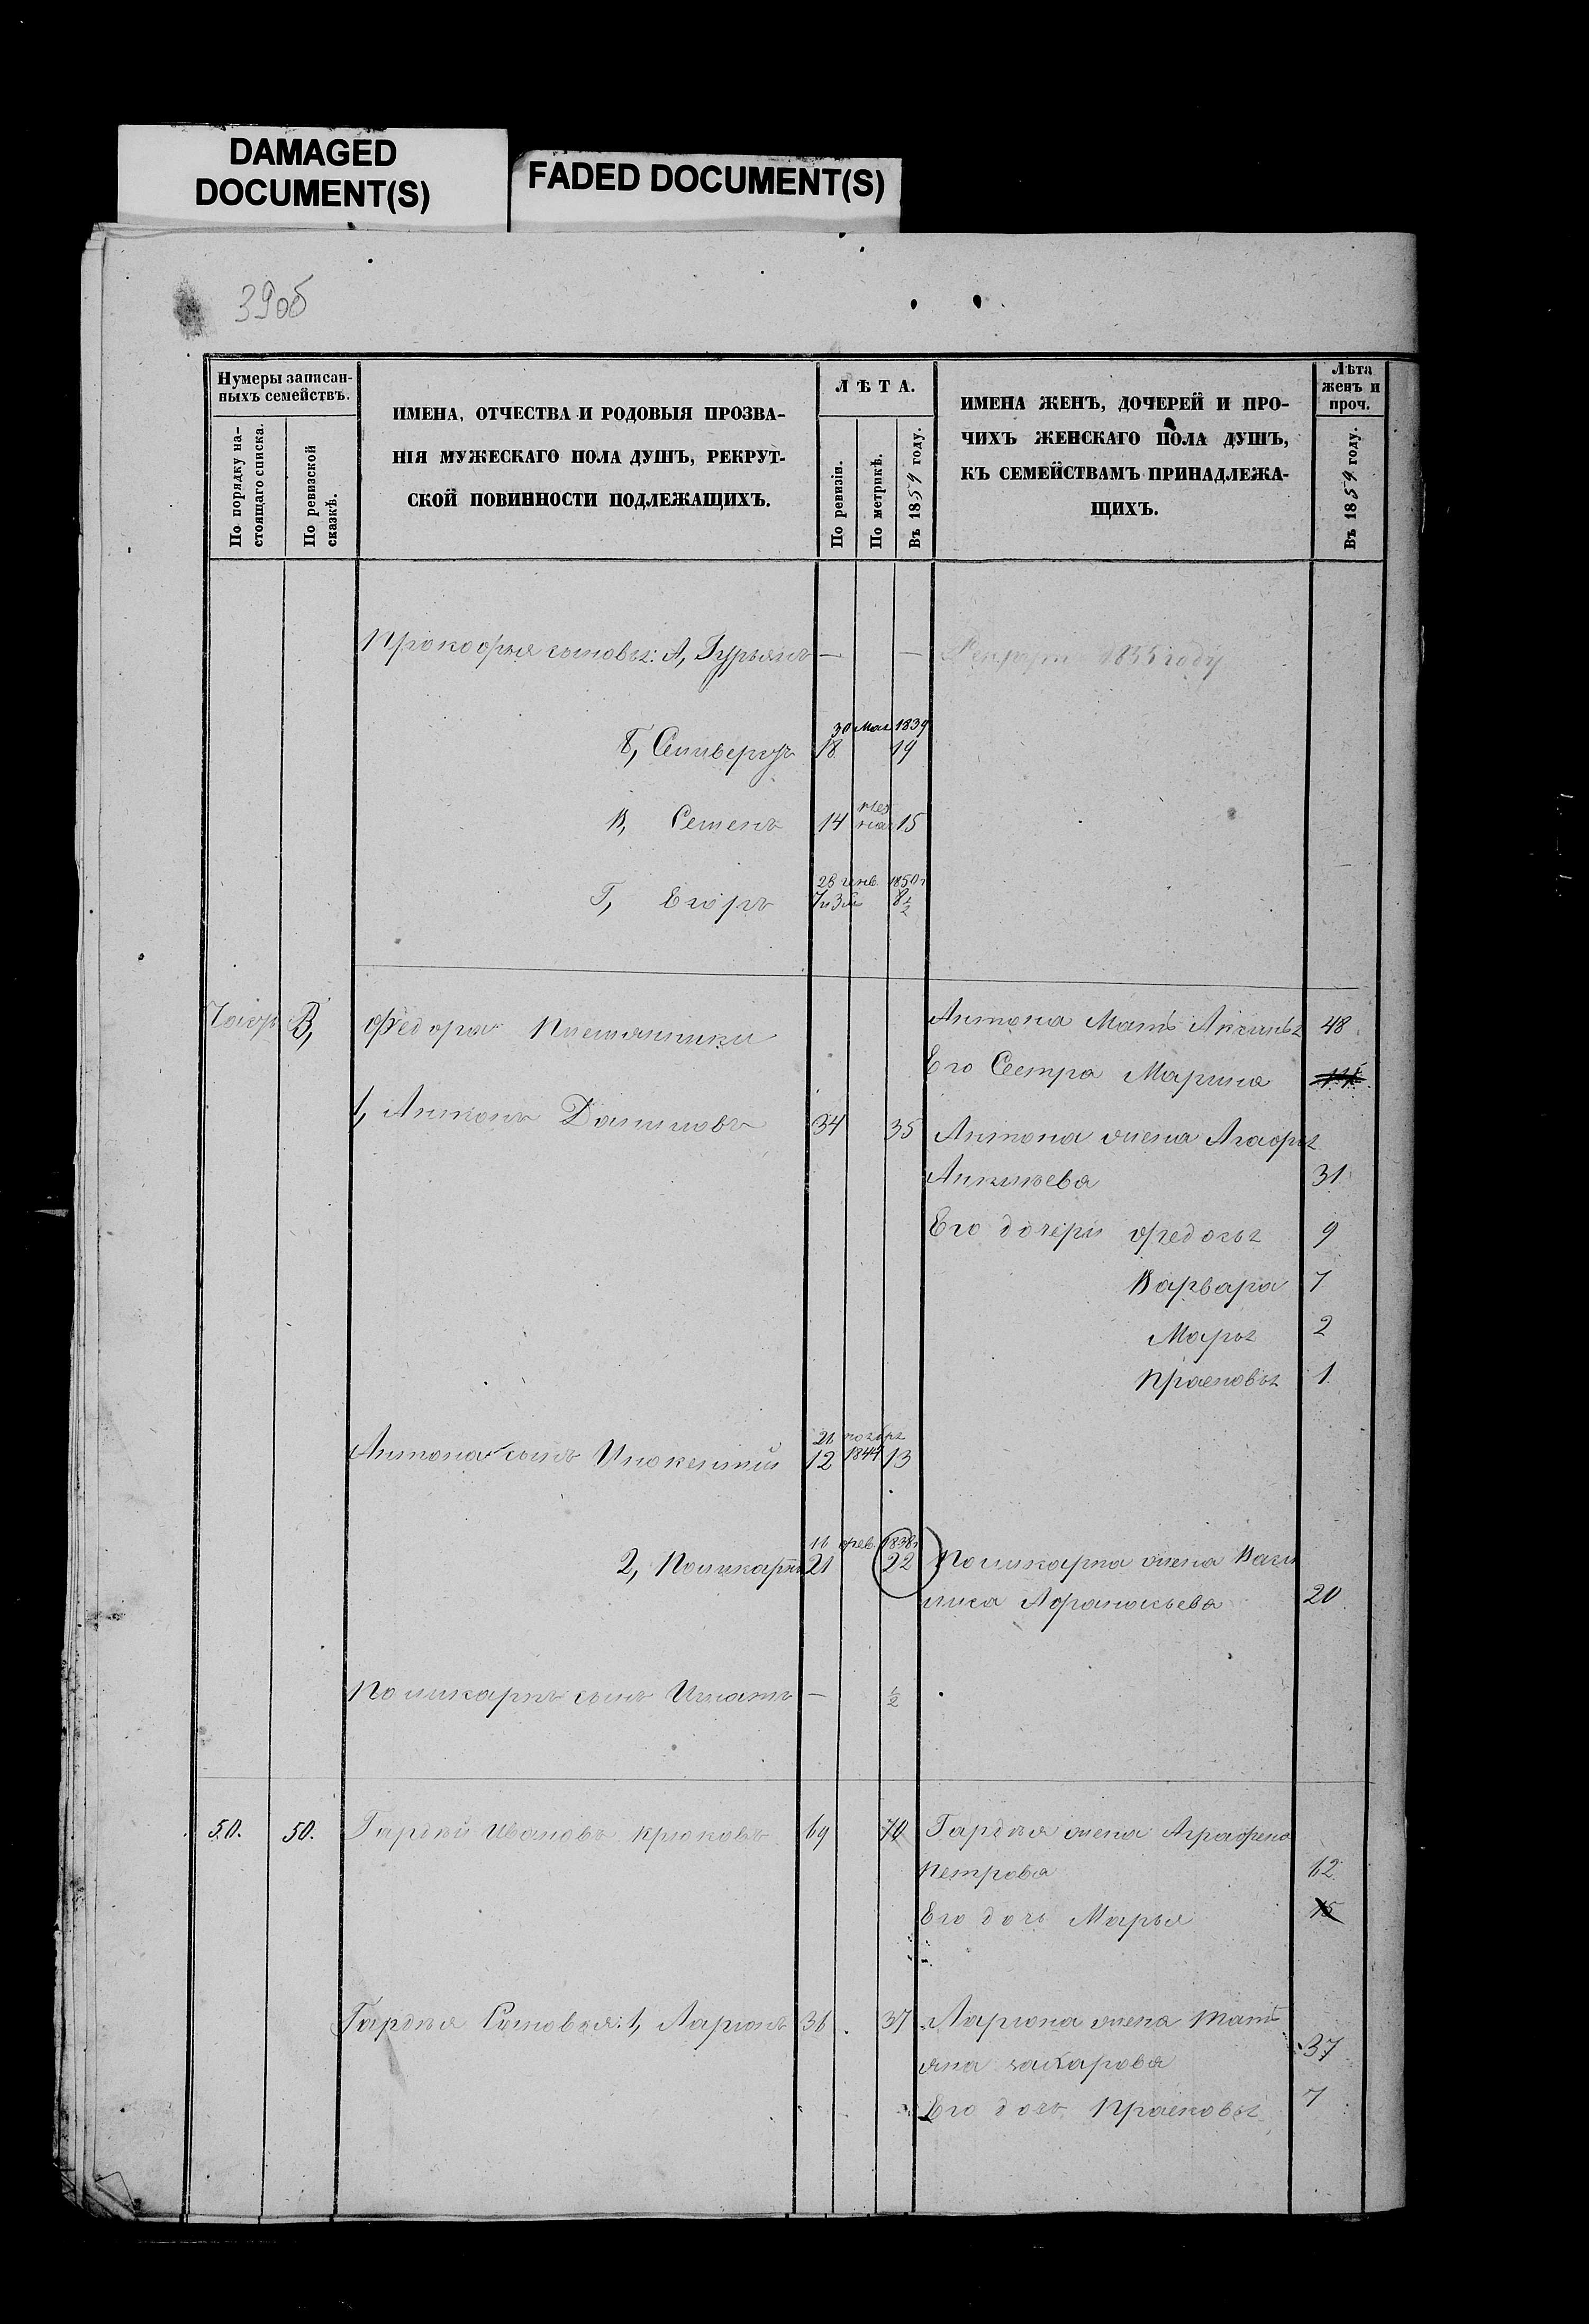 DAMAGED
DOCUMENT(S)
FADED DOCUMENT(S)
39об
Нумеры записан-
ныхъ семействъ.
По порядку на-
стоящаго списка.
По ревизской
сказкѣ.
ИМЕНА, ОТЧЕСТВА И РОДОВЫЯ ПРОЗВА-
НІЯ МУЖЕСКАГО ПОЛА ДУШЪ, РЕКРУТ-
СКОЙ ПОВИННОСТИ ПОДЛЕЖАЩИХЪ.
ЛѢТА.
По ревизіи.
По метрикѣ.
Въ 1859 году.
ИМЕНА ЖЕНЪ, ДОЧЕРЕЙ И ПРО-
ЧИХЪ ЖЕНСКАГО ПОЛА ДУШЪ,
КЪ СЕМЕЙСТВАМЪ ПРИНАДЛЕЖА-
ЩИХЪ.
Лѣта
женъ и
проч.
Въ 1859 году.
Прокофья сыновья: А, Гурьянъ — — 1855 году
30 мая 1839
Б, 18 19
В, Семенъ 14 15
28 генв. 1850 г
Г, Егоръ 7 и 3 м 8 1/2
В, Федора Племянники Антона Мать 48
Его Сестра Марина
1, Антонъ Даниловъ 34 35 Антона жена Агафья
31
Его дочери Федосья 9
Варвара 7
Марья 2
Прасковья 1
21 ноября
Антона сынъ Инокентий 12 1844 13
16 фев. 1838 г
2, Поликарпъ 21 22 Поликарпа жена Васи
лиса Афанасьева 20
Поликарпа сынъ Игнатъ — 1/2
50. 50. Гардѣй Ивановъ Крюковъ 69 70 Гардѣя жена Аграфена
Петрова 62
Его дочь Марья 15
Гардѣя Сыновья: 1, Ларионъ 36 37 Лариона жена Тать
яна Захарова 37
Его дочь Прасковья 7